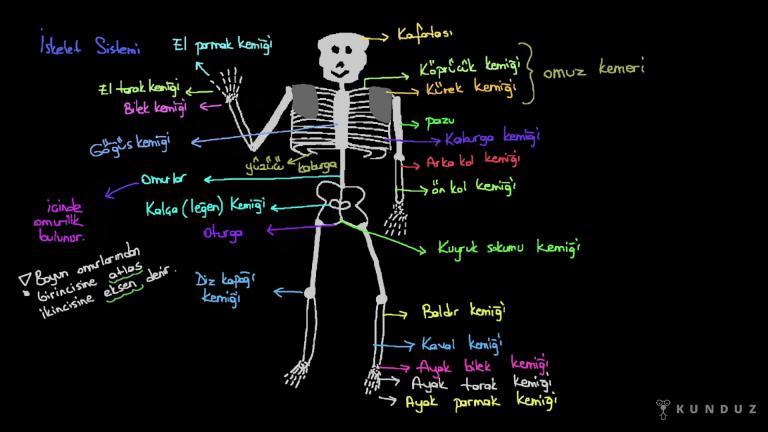 İskelet Sistemi
El parmak kemiği
El tarak kemiği
Bilek kemiği
Göğüs kemiği
yüzücü kaburga
Omurlar
içinde
omurilik
bulunur.
Kalça (leğen) Kemiği
Oturga
Boyun omurlarından
birincisine atlas
ikincisine eksen denir.
Diz kapağı
kemiği
Kafatası
Köprücük kemiği
Kürek kemiği
omuz kemeri
pazu
Kaburga kemiği
Arka kol kemiği
ön kol kemiği
Kuyruk sokumu kemiği
Baldır kemiği
Kaval kemiği
Ayak bilek kemiği
Ayak tarak kemiği
Ayak parmak kemiği
KUNDUZ